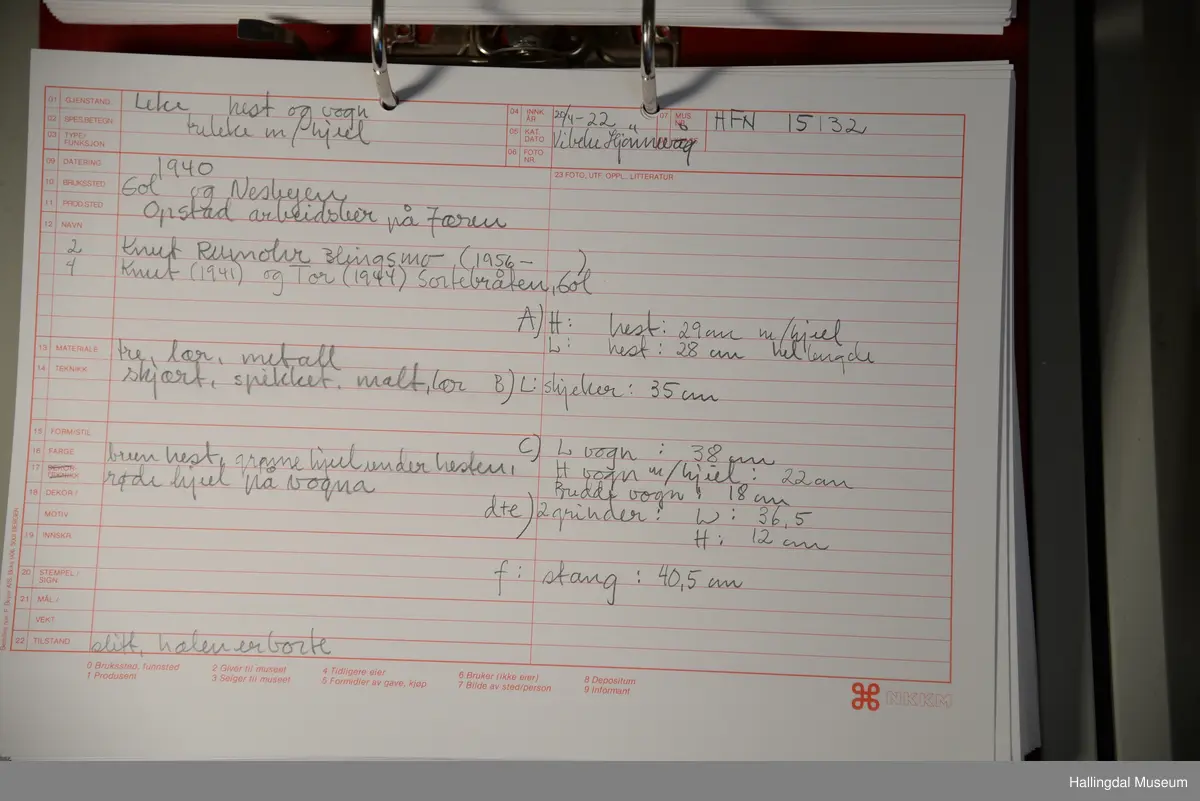 01 GJENSTAND Leke hest og vogn
02 SPESBETEGN trekke m/hjul
03 TYPE/ FUNKSJON
04 INNK ÅR 20/4-22
05 KAT. DATO Vibeke
06 FOTO NR.
07 MUS NR HFN 15132
09 DATERING 1940
10 BRUKSSTED Gol og Nesbyen
11 PROD.STED Opstad arbeidsleir på Jæren
12 NAVN
23 FOTO, UTF. OPPL. LITTERATUR
2 Knut Rumohr Blingsmo (1956- )
4 Knut (1941) og Tor (1944) Sortebråten, Gol
A) H: hest: 29 cm m/hjul
L: hest: 28 cm hel lengde
13 MATERIALE tre, lær, metall
14 TEKNIKK skjært, spikket, malt, lær
B) L: skjeker: 35 cm
15 FORM/STIL
16 FARGE brun hest, grønne hjul under hesten,
17 DEKOR-TEKNIKK røde hjul på vogna
C) L vogn: 38 cm
H vogn m/hjul: 22 cm
Bredde vogn: 18 cm
18 DEKOR /
MOTIV
d+e) 2 grinder: L: 36,5
H: 12 cm
19 INNSKR
20 STEMPEL / SIGN
f: stang: 40,5 cm
21 MÅL /
VEKT
22 TILSTAND slitt, halen er borte
0 Brukssted, funnsted
1 Produsent
2 Giver til museet
3 Selger til museet
4 Tidligere eier
5 Formidler av gave, kjøp
6 Bruker (ikke eier)
7 Bilde av sted/person
8 Depositum
9 Informant
NKKM
Hallingdal Museum